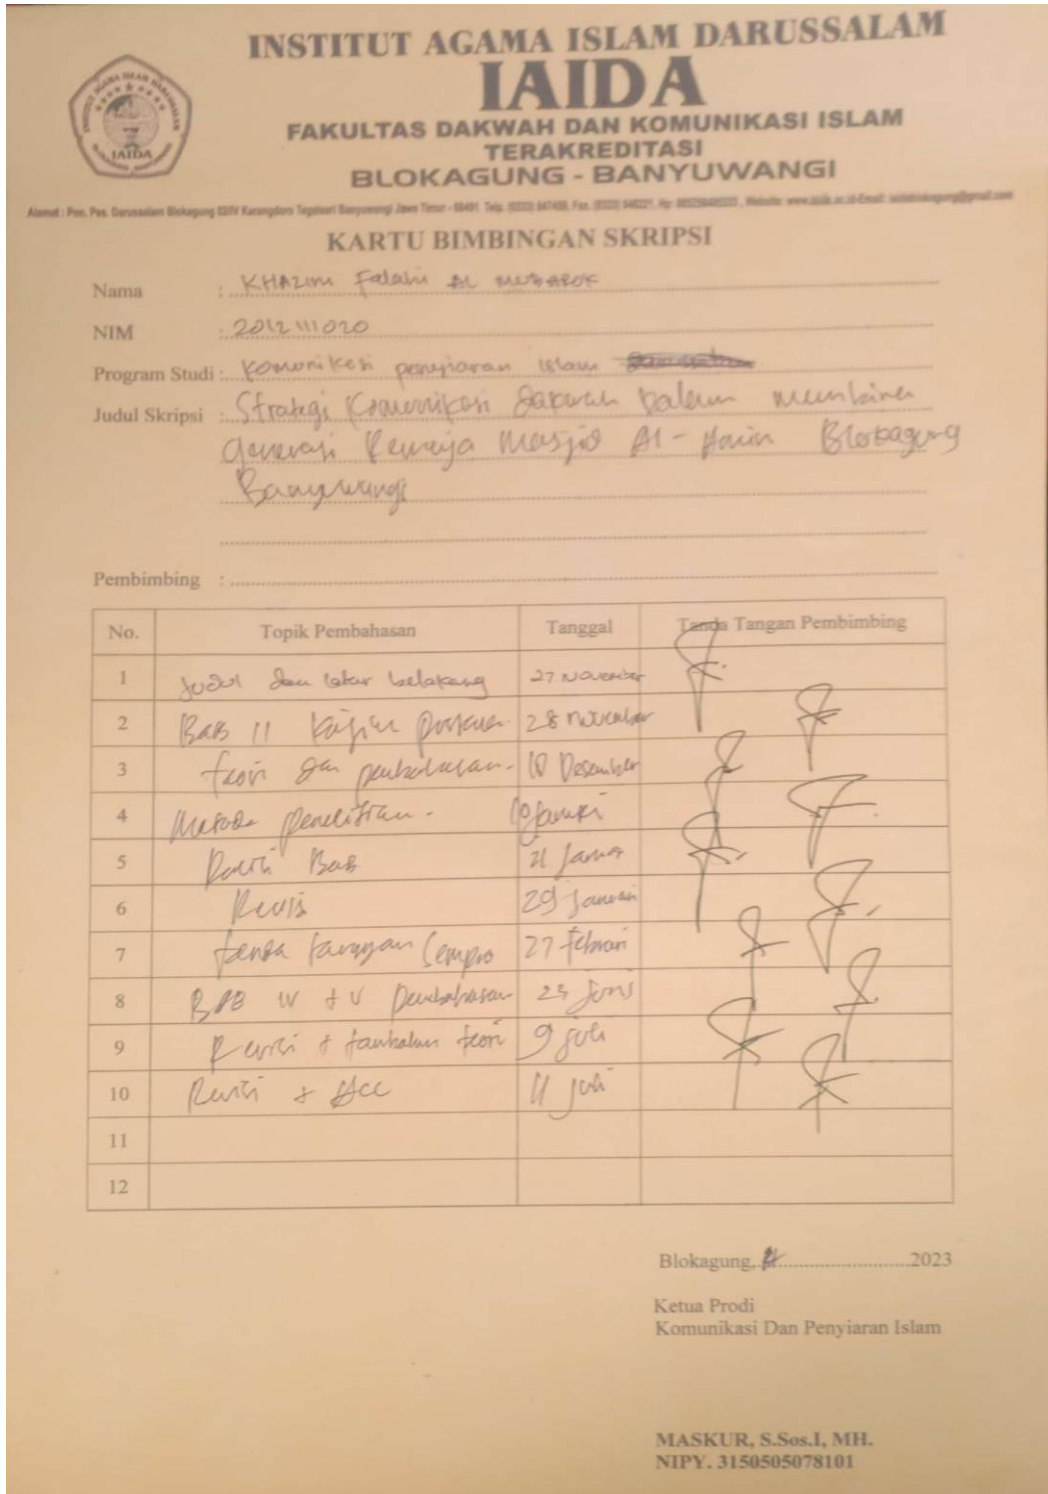 INSTITUT AGAMA ISLAM DARUSSALAM
IAIDA
FAKULTAS DAKWAH DAN KOMUNIKASI ISLAM
TERAKREDITASI
BLOKAGUNG - BANYUWANGI
IAIDA
Alamat : Pon. Pes. Darussalam Blokagung 02/IV Karangdoro Tegalsari Banyuwangi Jawa Timur - 68491 Telp. (0333) Fax. (0333) Hp: Website: www.iaida.ac.id-Email:
KARTU BIMBINGAN SKRIPSI
Nama : KHAZIM Falahi AL MUBAROK
NIM : 2012111020
Program Studi : Komunikasi penyiaran islam
Judul Skripsi : Strategi Komunikasi dakwah dalam membina
generasi Remaja Masjid Al-Amin Blokagung
Banyuwangi
Pembimbing :
No. Topik Pembahasan Tanggal Tanda Tangan Pembimbing
1 Judul dan latar belakang 27 November
2 BAB II Kajian pustaka 28 november
3 teori dan pembahasan - 10 Desember
4 Metode penelitian - 10 Januari
5 Revisi Bab 21 Januari
6 Revisi 29 januari
7 tanda tangan Sempro 27 februari
8 BAB IV + V pembahasan 23 juni
9 Revisi + tambahan teori 9 juli
10 Revisi + Acc 11 juli
11
12
Blokagung, 2023
Ketua Prodi
Komunikasi Dan Penyiaran Islam
MASKUR, S.Sos.I, MH.
NIPY. 3150505078101